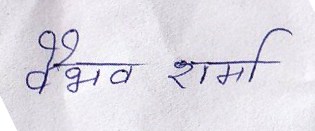 वैभव शर्मा